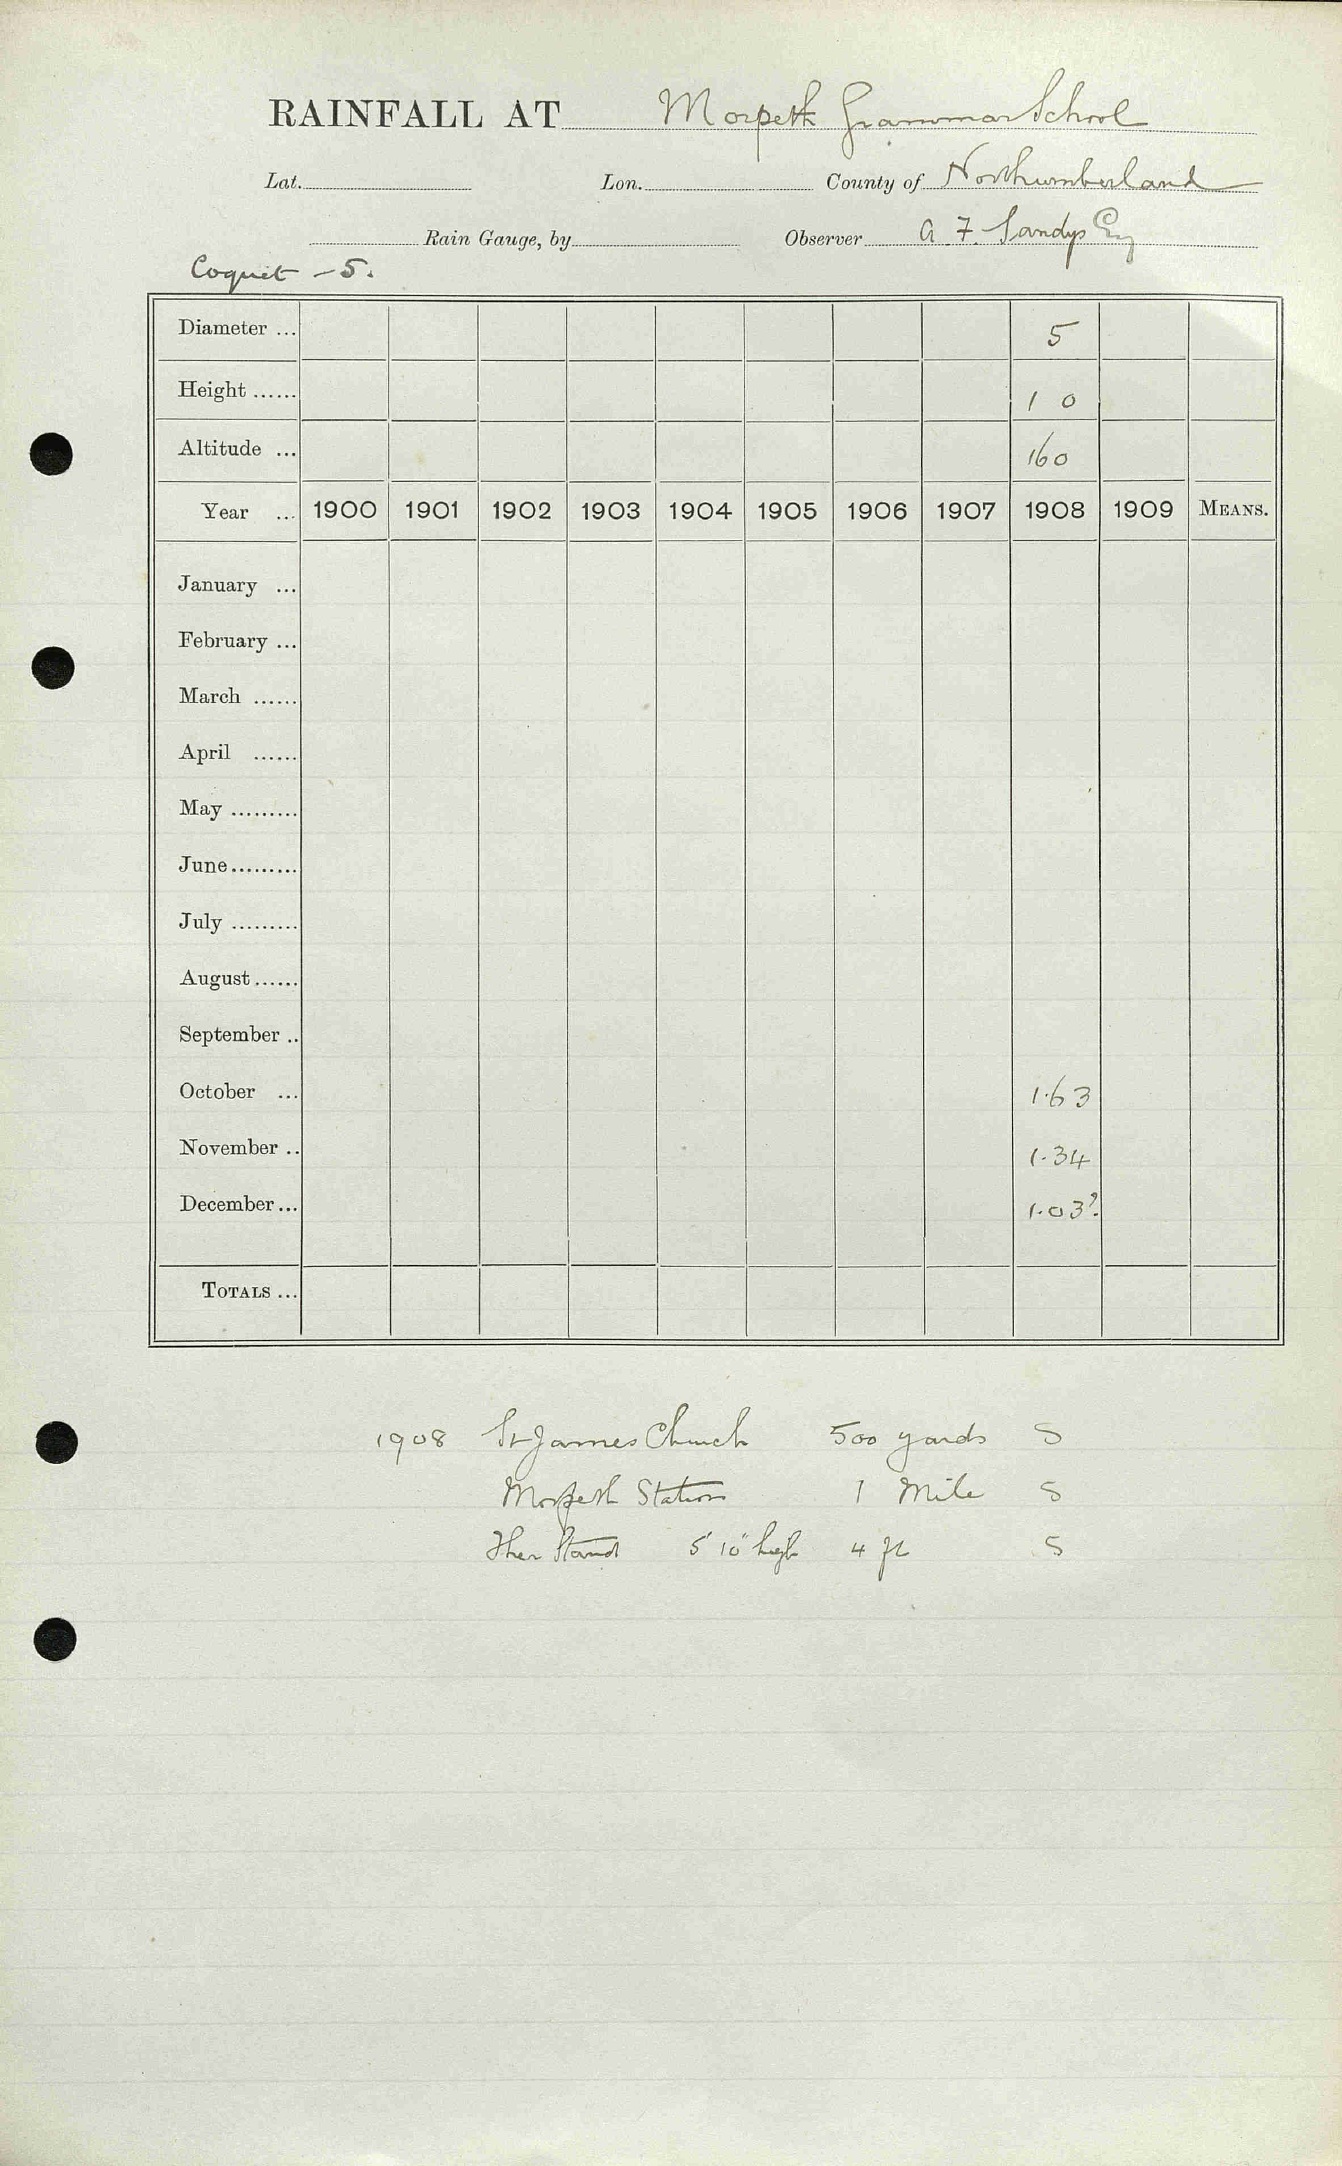 RAINFALL AT Morpeth Grammar School
Lat. Lon. County of Northumberland
Rain Gauge, by Observer A F. Sandys Esq
Coquet - 5.
Diameter ... 5
Height ...... 1 0
Altitude ... 160
Year ... 1900 1901 1902 1903 1904 1905 1906 1907 1908 1909 MEANS.
January ...
February ...
March ......
April ......
May .........
June.........
July .........
August......
September ..
October ... 1.63
November .. 1.34
December... 1.03?
TOTALS ...
1908 St James Church 500 yards S
Morpeth Station 1 Mile S
Ther Stand 5' 10" high 4 ft S